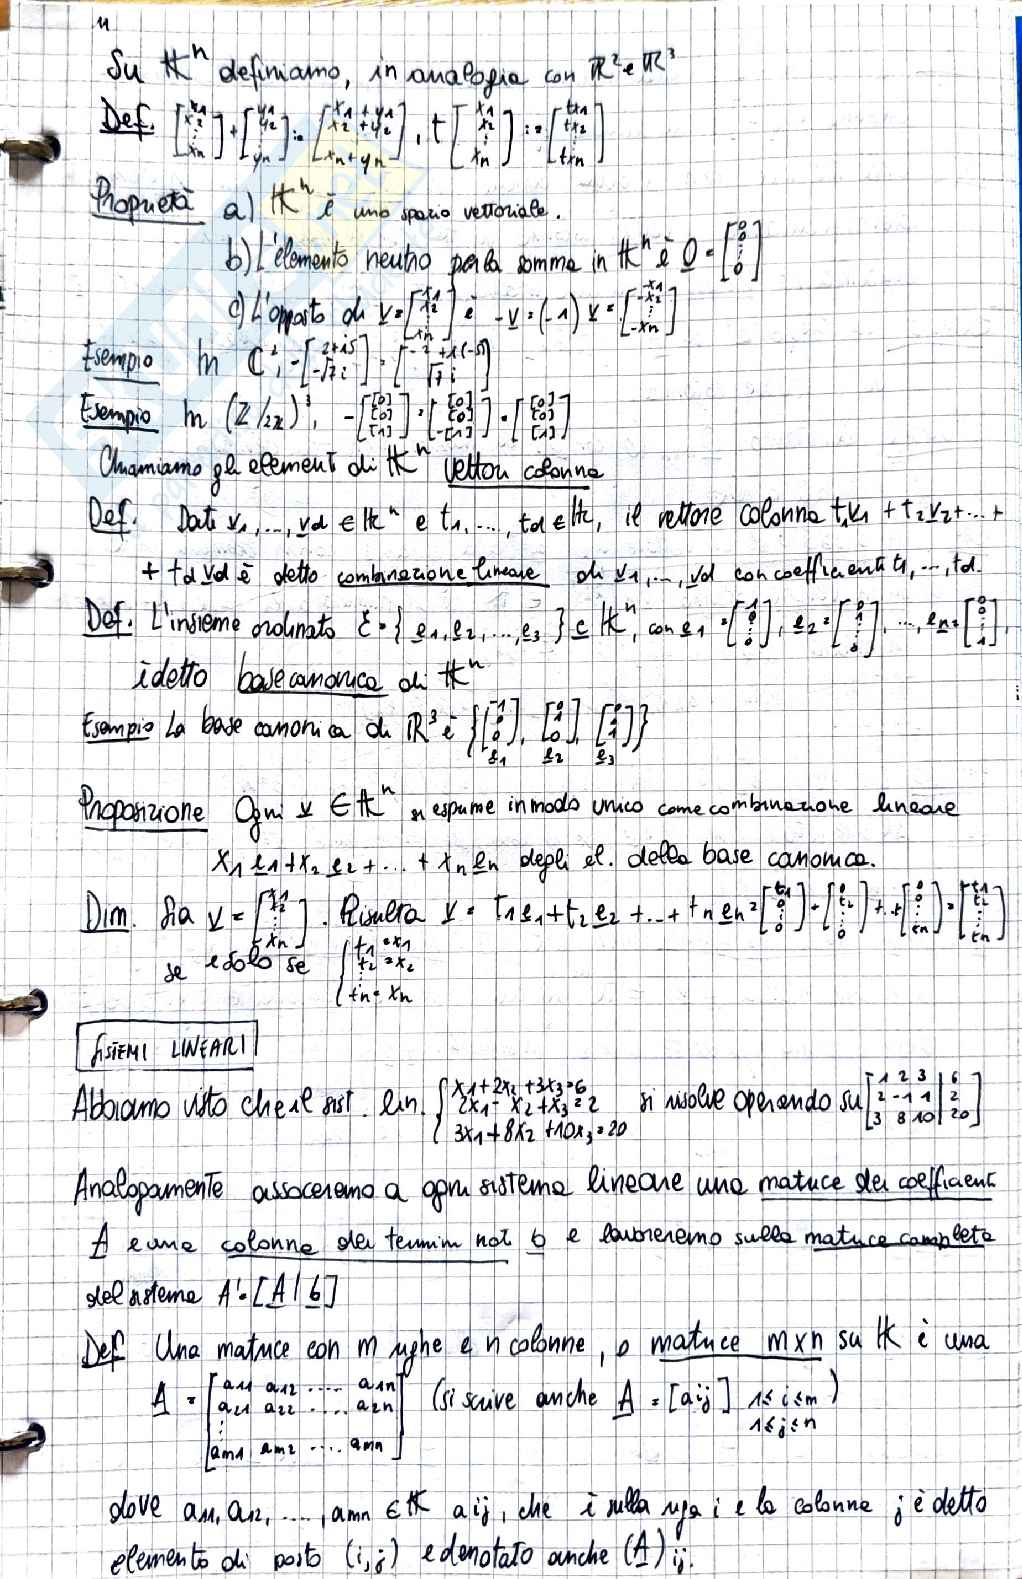 Su 𝕂ⁿ definiamo, in analogia con ℝ² e ℝ³
Def. [x1 x2 ⋮ xn] + [y1 y2 ⋮ yn] := [x1+y1 x2+y2 ⋮ xn+yn], t [x1 x2 ⋮ xn] := [tx1 tx2 ⋮ txn]
Proprietà a) 𝕂ⁿ è uno spazio vettoriale.
b) L'elemento neutro per la somma in 𝕂ⁿ è 0 = [0 0 ⋮ 0]
c) L'opposto di v = [x1 x2 ⋮ xn] è -v = (-1) v = [-x1 -x2 ⋮ -xn]
Esempio In ℂ², -[2+i5 -√7 i] = [-2+i(-5) √7 i]
Esempio In (ℤ/2ℤ)³, -[[0] [0] [1]] = [[0] [0] -[1]] = [[0] [0] [1]]
Chiamiamo gli elementi di 𝕂ⁿ vettori colonna
Def. Dati v1, ..., vd ∈ 𝕂ⁿ e t1, ..., td ∈ 𝕂, il vettore colonna t1v1 + t2v2 + ... +
+ td vd è detto combinazione lineare di v1, ..., vd con coefficienti t1, ..., td.
Def. L'insieme ordinato ℰ = {e1, e2, ..., e3} ⊆ 𝕂ⁿ, con e1 = [1 0 ⋮ 0], e2 = [0 1 ⋮ 0], ..., en = [0 0 ⋮ 1],
è detto base canonica di 𝕂ⁿ
Esempio La base canonica di ℝ³ è {[1 0 0], [0 1 0], [0 0 1]}
e1 e2 e3
Proposizione Ogni v ∈ 𝕂ⁿ si esprime in modo unico come combinazione lineare
x1 e1 + x2 e2 + ... + xn en degli el. della base canonica.
Dim. Sia v = [x1 x2 ⋮ xn]. Risulta v = t1 e1 + t2 e2 + ... + tn en = [t1 0 ⋮ 0] + [0 t2 ⋮ 0] + ... + [0 0 ⋮ tn] = [t1 t2 ⋮ tn]
se e solo se { t1 = x1 t2 = x2 ⋮ tn = xn
SISTEMI LINEARI
Abbiamo visto che il sist. lin. { x1+2x2+3x3=6 2x1-x2+x3=2 3x1+8x2+10x3=20 si risolve operando su [1 2 3 | 6 2 -1 1 | 2 3 8 10 | 20]
Analogamente assoceremo a ogni sistema lineare una matrice dei coefficienti
A e una colonna dei termini noti b e lavoreremo sulla matrice completa
del sistema A' = [A | b]
Def Una matrice con m righe e n colonne, o matrice m×n su 𝕂 è una
A = [a11 a12 ..... a1n a21 a22 ..... a2n ⋮ am1 am2 .... amn] (si scrive anche A = [aij] 1≤i≤m 1≤j≤n)
dove a11, a12, ..., amn ∈ 𝕂 aij, che è sulla riga i e la colonna j è detto
elemento di posto (i,j) e denotato anche (A)ij.